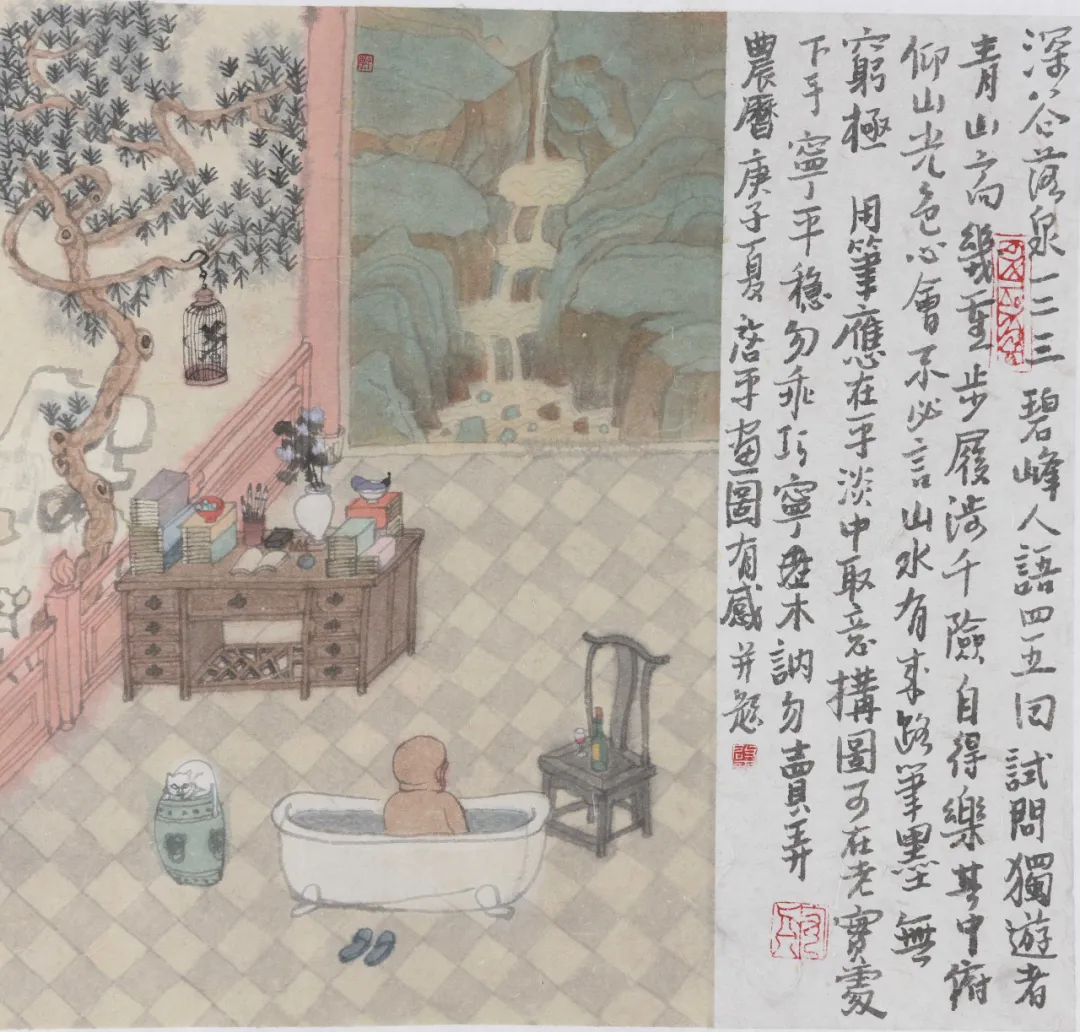 深谷落泉一二三 碧峰人語四五回 試問獨遊者
青山高幾重 步履涉千險 自得樂其中 俯
仰山光色心會不必言 山水有來路筆墨無
窮極 用筆應在平淡中取意 構圖可在老實處
下手 寧平穩勿乖巧 寧木訥勿賣弄
農曆庚子夏 平畫圖有感并題